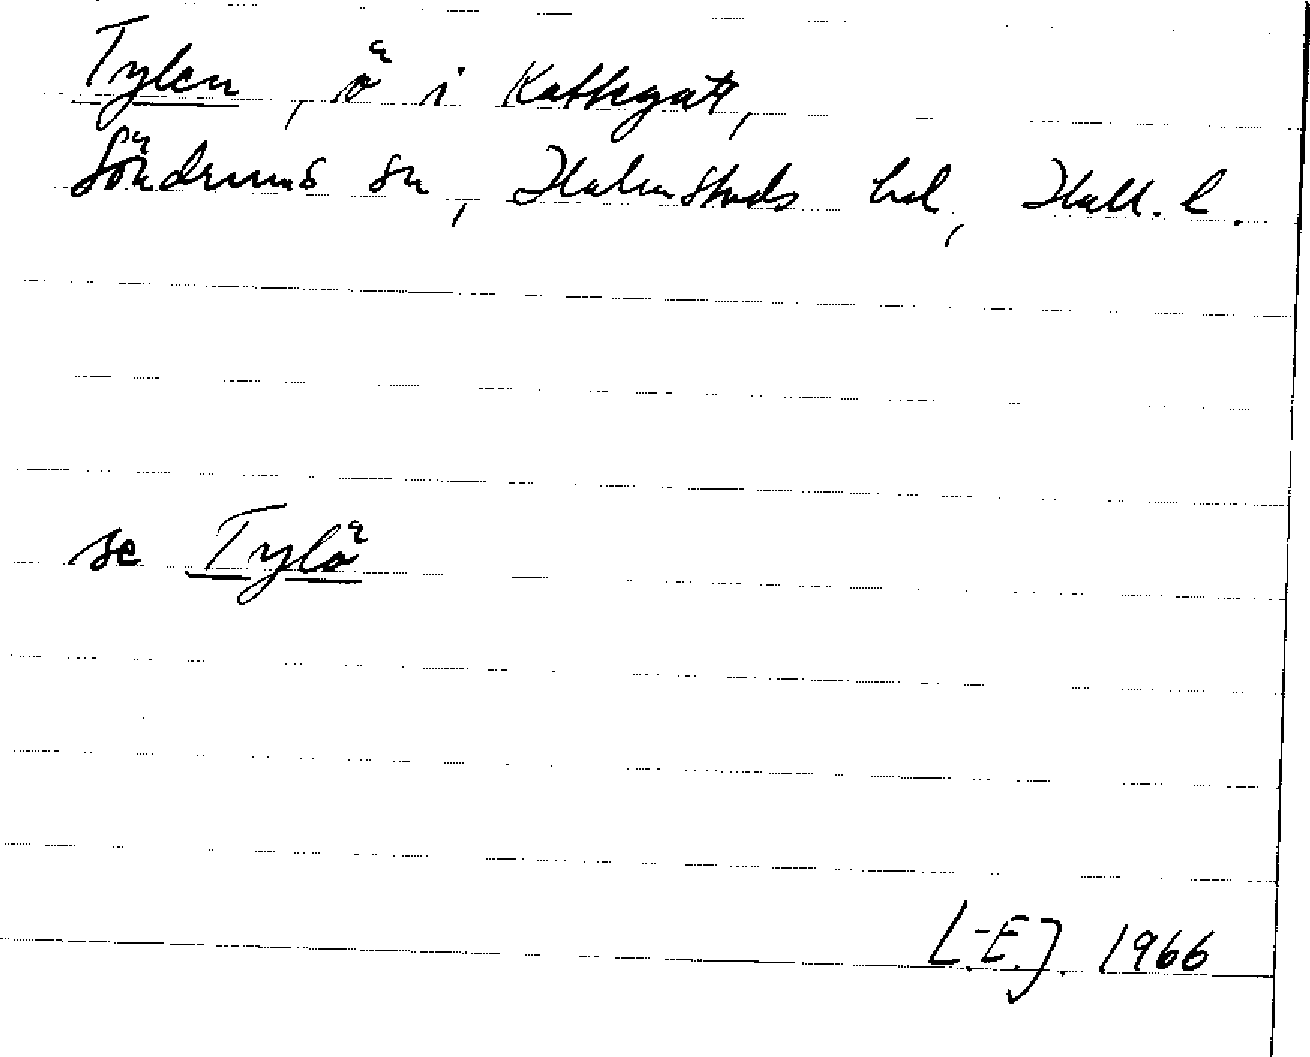 Tylen, ö i Kattegatt,
Söndrums sn, Halmstads hd, Hall. l.
se Tylö
L-E.J. 1966